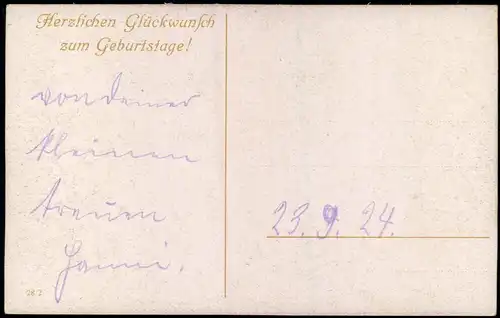 Herzlichen Glückwunsch
zum Geburtstage!
von deiner
kleinen
treuen
Hanni.
23. 9. 24.